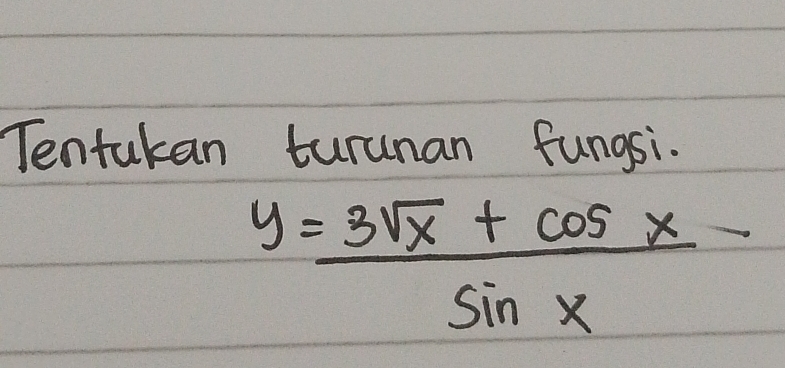 Tentukan turunan fungsi.
y = 3√x + cos x
sin x